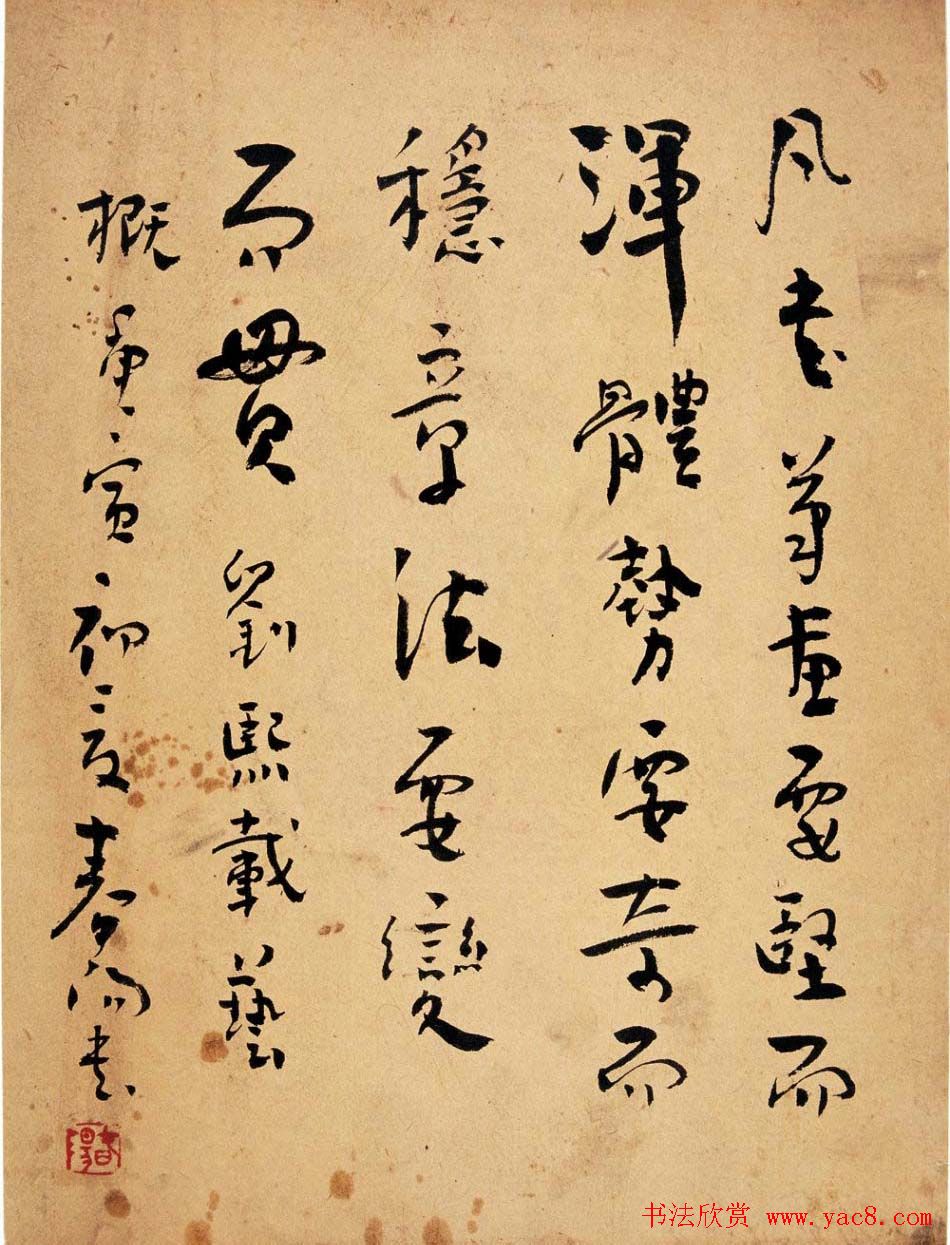 凡書筆畫要堅而
渾體勢要奇而
穩章法要變
而貫劉熙載藝
概庚寅初夏春陽書
书法欣赏 www.yac8.com